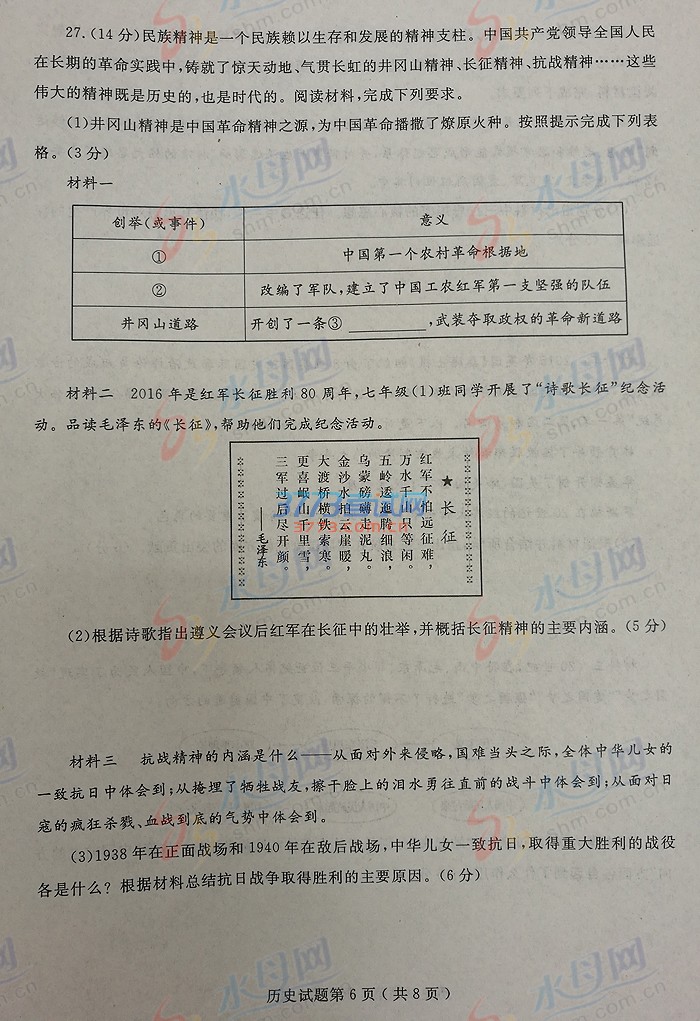 27.(14分)民族精神是一个民族赖以生存和发展的精神支柱。中国共产党领导全国人民
在长期的革命实践中,铸就了惊天动地、气贯长虹的井冈山精神、长征精神、抗战精神……这些
伟大的精神既是历史的,也是时代的。阅读材料,完成下列要求。
(1)井冈山精神是中国革命精神之源,为中国革命播撒了燎原火种。按照提示完成下列表
格。(3分)
材料一
创举(或事件) 意义
① 中国第一个农村革命根据地
② 改编了军队,建立了中国工农红军第一支坚强的队伍
井冈山道路 开创了一条③________,武装夺取政权的革命新道路
材料二 2016年是红军长征胜利80周年,七年级(1)班同学开展了“诗歌长征”纪念活
动。品读毛泽东的《长征》,帮助他们完成纪念活动。
★长征
红军不怕远征难,
万水千山只等闲。
五岭逶迤腾细浪,
乌蒙磅礴走泥丸。
金沙水拍云崖暖,
大渡桥横铁索寒。
更喜岷山千里雪,
三军过后尽开颜。
——毛泽东
(2)根据诗歌指出遵义会议后红军在长征中的壮举,并概括长征精神的主要内涵。(5分)
材料三 抗战精神的内涵是什么——从面对外来侵略,国难当头之际,全体中华儿女的
一致抗日中体会到;从掩埋了牺牲战友,擦干脸上的泪水勇往直前的战斗中体会到;从面对日
寇的疯狂杀戮、血战到底的气势中体会到。
(3)1938年在正面战场和1940年在敌后战场,中华儿女一致抗日,取得重大胜利的战役
各是什么?根据材料总结抗日战争取得胜利的主要原因。(6分)
历史试题第6页(共8页)
水母网
shm.com.cn
3773考试网
3773.com.cn